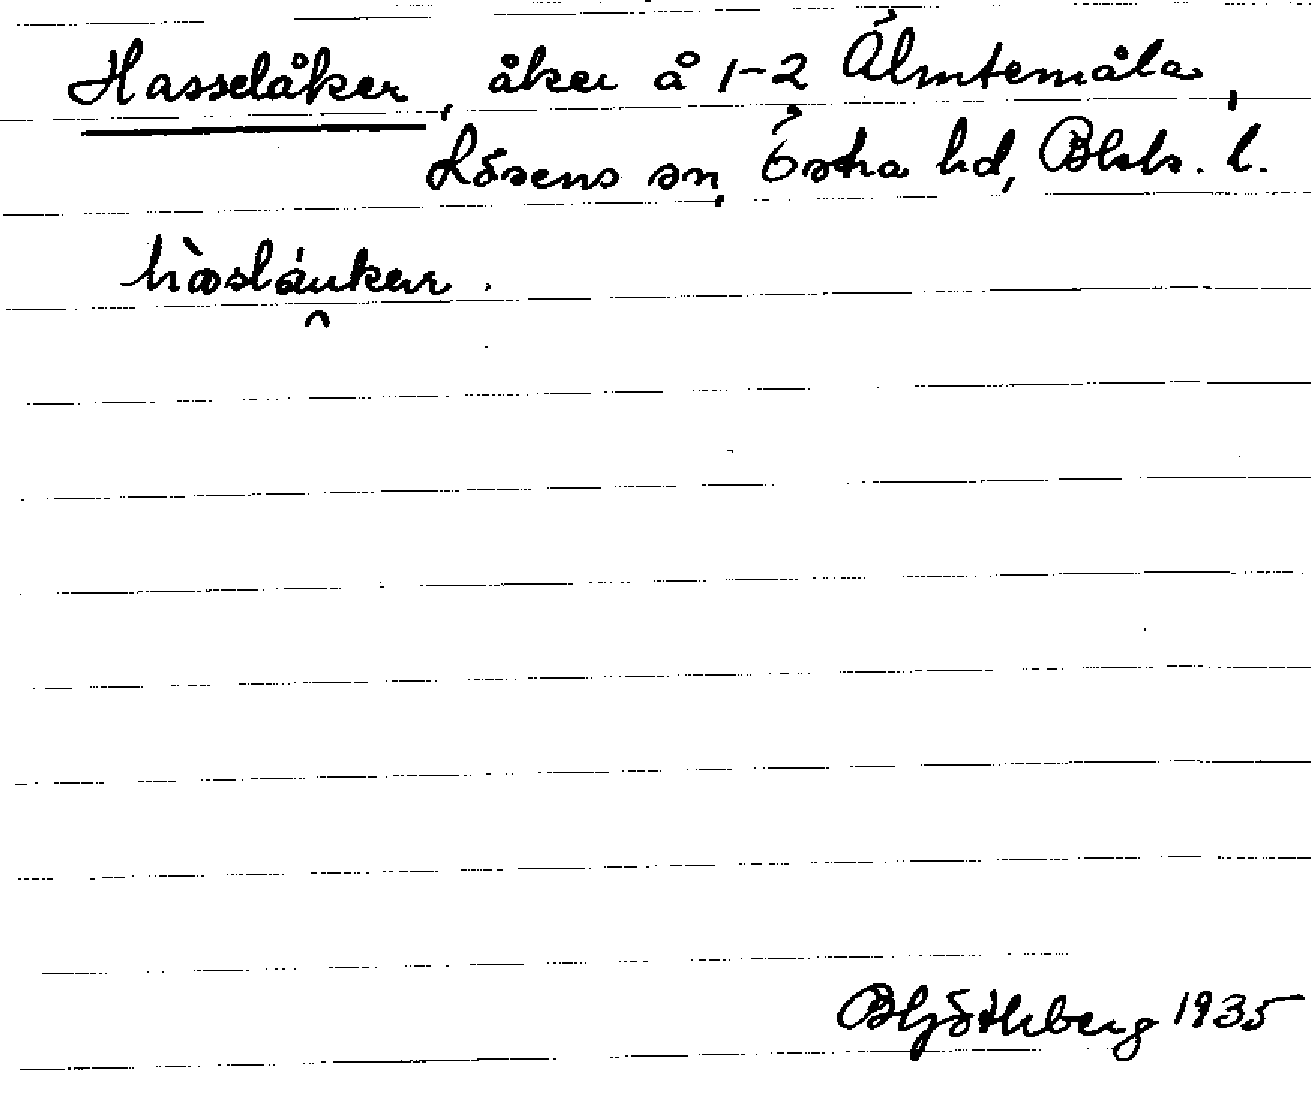 Hasselåker, åker å 1-2 Älmtemåla,
Lösens sn, Östra hd, Blek. l.
hàslåukear.
BHjörthberg 1935